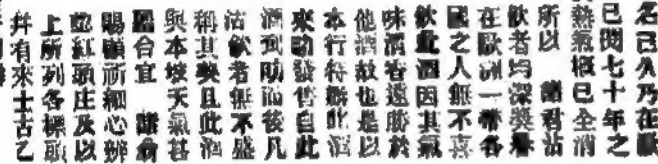 名已久乃在歐
已閱七十年之
熱氣概已全消
所以 諸君沽
飲者均深獎
在歐洲一帶各
國之人無不喜
飲此酒因其氣
味清香遠勝於
他酒故也是以
本行特辦此酒
來叻發售自此
酒到叻而後凡
沽飲者無不盛
稱其美且此酒
與本坡天氣甚
屬合宜 諸翁
賜顧祈細心辨
認紅頭庄及以
上所列各標頭
并有來士古乙